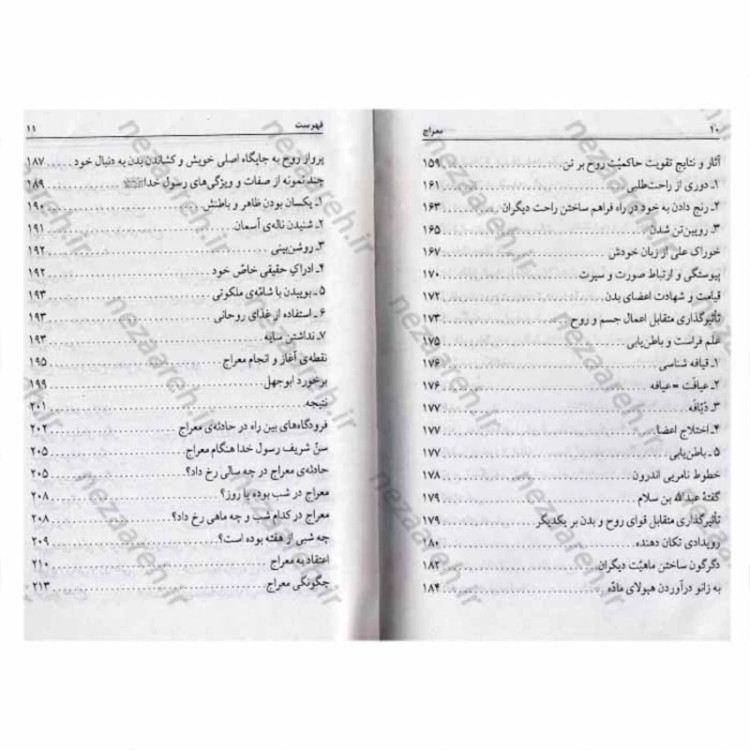 ۱۰ معراج
آثار و نتایج تقویت حاکمیّت روح بر تن ۱۵۹
۱ـ دوری از راحت‌طلبی ۱۶۱
۲ـ رنج دادن به خود در راه فراهم ساختن راحت دیگران ۱۶۳
۳ـ رویین‌تن شدن ۱۶۵
خوراک علی از زبان خودش ۱۶۷
پیوستگی و ارتباط صورت و سیرت ۱۷۰
قیامت و شهادت اعضای بدن ۱۷۲
تأثیرگذاری متقابل اعمال جسم و روح ۱۷۳
علم فراست و باطن‌یابی ۱۷۵
۱ـ قیافه شناسی ۱۷۶
۲ـ عیافت = عیافه ۱۷۶
۳ـ ذیّافه ۱۷۷
۴ـ اختلاج اعضا ۱۷۷
۵ـ باطن‌یابی ۱۷۷
خطوط نامریی اندرون ۱۷۸
گفتهٔ عبدالله بن سلام ۱۷۹
تأثیرگذاری متقابل قوای روح و بدن بر یکدیگر ۱۷۹
رویدادی تکان دهنده ۱۸۰
دگرگون ساختن ماهیّت دیگران ۱۸۲
به زانو درآوردن هیولای مادّه ۱۸۴
فهرست ۱۱
پرواز روح به جایگاه اصلی خویش و کشاندن بدن به دنبال خود ۱۸۷
چند نمونه از صفات و ویژگی‌های رسول خدا ۱۸۹
۱ـ یکسان بودن ظاهر و باطنش ۱۹۰
۲ـ شنیدن ناله‌ی آسمان ۱۹۱
۳ـ روشن‌بینی ۱۹۲
۴ـ ادراک حقیقی خاصّ خود ۱۹۲
۵ـ بوییدن با شامّه‌ی ملکوتی ۱۹۳
۶ـ استفاده از غذای روحانی ۱۹۳
۷ـ نداشتن سایه ۱۹۳
نقطه‌ی آغاز و انجام معراج ۱۹۵
برخورد ابوجهل ۱۹۹
نتیجه ۲۰۱
فرودگاه‌های بین راه در حادثه‌ی معراج ۲۰۲
سنّ شریف رسول خدا هنگام معراج ۲۰۵
حادثه‌ی معراج در چه سالی رخ داد؟ ۲۰۵
معراج در شب بوده یا روز؟ ۲۰۸
معراج در کدام شب و چه ماهی رخ داد؟ ۲۰۸
چه شبی از هفته بوده است؟ ۲۰۹
اعتقاد به معراج ۲۱۰
چگونگی معراج ۲۱۳
nezaareh.ir